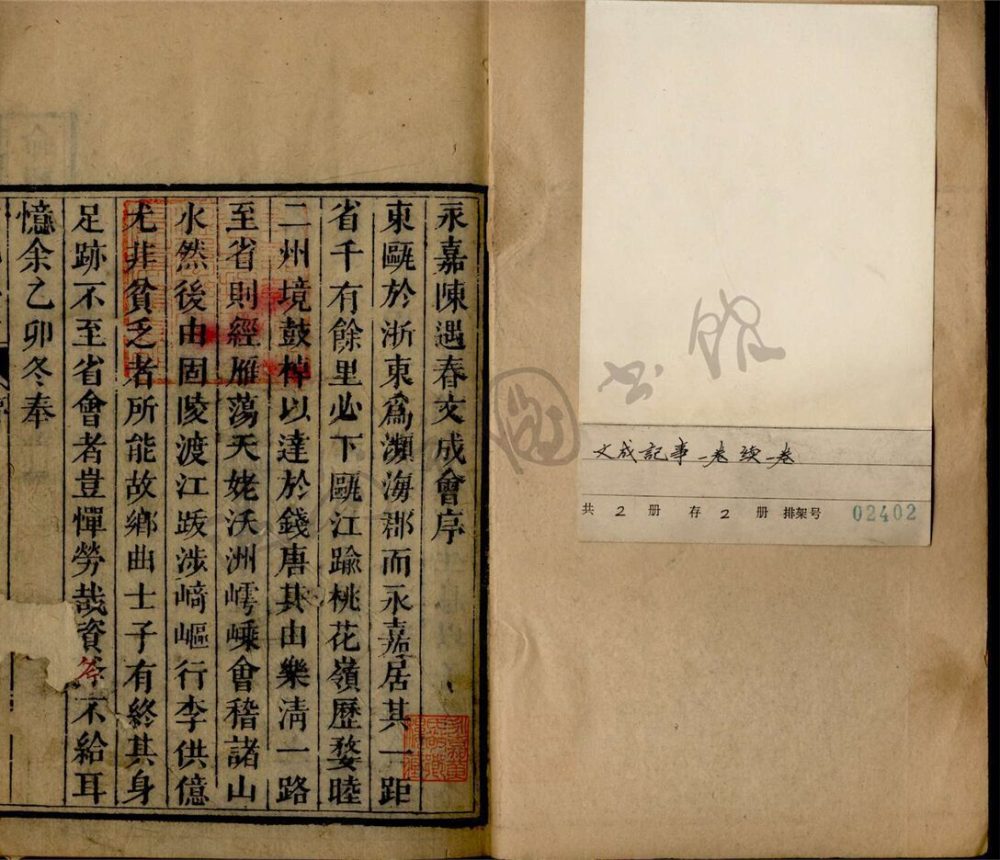 永嘉陳遇春文成會序
東甌於浙東爲瀕海郡而永嘉居其一距
省千有餘里必下甌江踰桃花嶺歷婺睦
二州境鼓棹以達於錢唐其由樂淸一路
至省則經雁蕩天姥沃洲嶀嵊會稽諸山
水然後由固陵渡江跋涉崎嶇行李供億
尤非貧乏者所能故鄉曲士子有終其身
足跡不至省會者豈憚勞哉資斧不給耳
憶余乙卯冬奉
文成記事一卷續一卷
共 2 册 存 2 册 排架号 02402